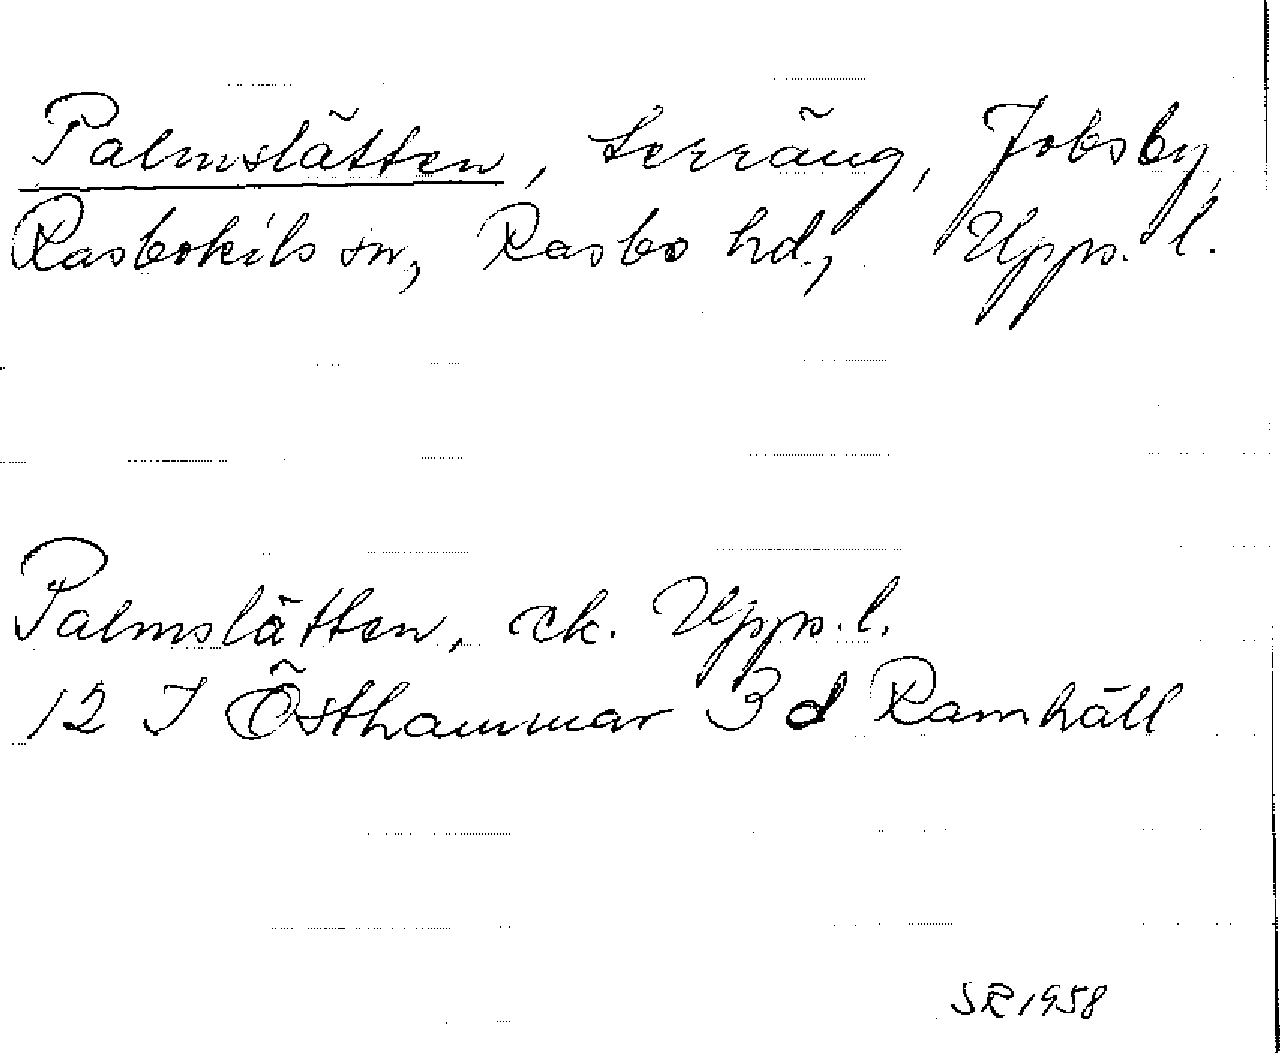 Palmslätten, terräng, Jobsby,
Rasbokils sn, Rasbo hd., Upps. l.
Palmslätten, ek. Upps. l.
12 I Östhammar 3 d Ramhäll
SR 1958